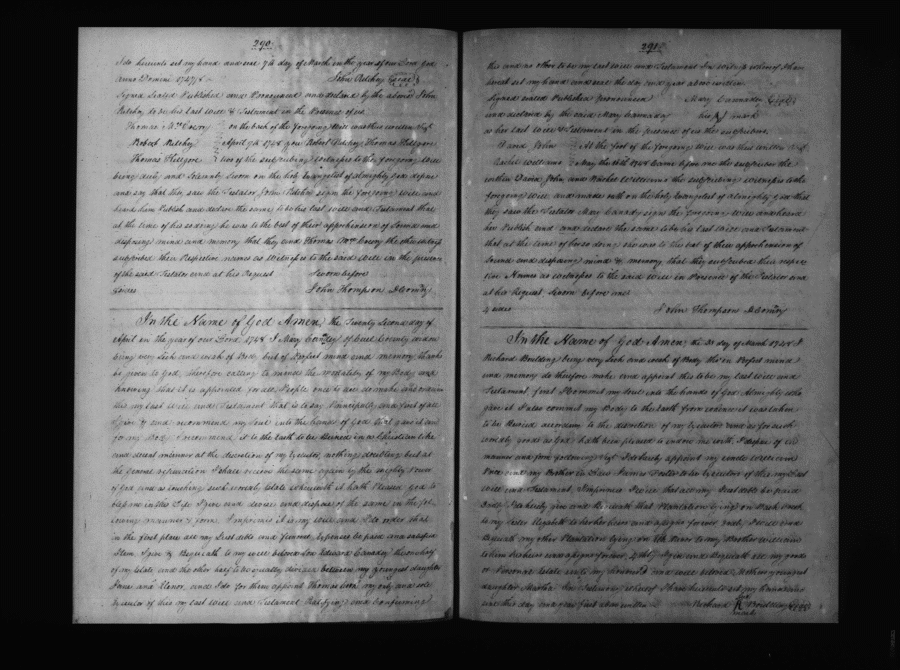 290
I do hereunto set my hand and seal 7th day of March in the year of our Lord God
Anno Domini 1747/8 John Pilchy Seal
Signed Sealed Published and Pronounced and declared by the above John
to be his last Will & Testament in the Presence of us
Thomas on the back of the forgoing Will was thus written
Robert April 9th 1748 Robert Thomas Killgore
Thomas Killgore two of the subscribing Witnesses to the forgoing Will
being duly and Solemnly Sworn on the holy Evangelist of almighty God depose
and say that they saw the Testator John sign the forgoing Will and
heard him Publish and declare the same to be his last Will and Testament that
at the time of his so doing he was to the best of their apprehension of Sound and
disposing mind and memory that they and Thomas the other
subscribed their Respective names as Witnesses to the said Will in the presence
of the said Testator and at his Request Sworn before
John Thompson D Comry
In the Name of God Amen, the Twenty Second day of
April in the year of our Lord 1748 I Mary of Cecil County widow
being very Sick and weak of Body but of Perfect mind and memory thanks
be given to God, therefore calling to minde the mortality of my Body and
knowing that it is appointed for all People once to die do make and ordain
this my Last Will and Testament that is to say Principally and first of all
I give & and recommend my Soul into the hands of God that gave it and
for my Body I recommend it to the Earth to be Buried in a Christian like
and decent manner at the discretion of my Executor nothing doubting but at
the general I shall receive the same again by the mighty Power
of God and as touching such worldly Estate wherewith it hath Pleased God to
bless me in this Life I give and devise and dispose of the same in the fol
lowing manner & form. Imprimis it is my will and I do order that
in the first place all my Just debts and funeral Expences be paid and satisfied
Item. I give & Bequeath to my well beloved Son Edward Canaday the one half
of my Estate and the other half to be equally divided between my youngest daughters
and Elenor, and I do for them appoint Thomas my only and sole
Executor of this my last Will and Testament Ratifying and Confirming
291
this and no other to be my last Will and Testament In witness whereof I have
hereunto set my hand and seal the day and year above written
Signed sealed Published Pronounced Mary Cannaday Seal
and declared by the said Mary Cannaday his mark
as her last Will & Testament in the presence of us the subscribers.
David John At the foot of the forgoing Will was thus written
Rachel Williams May the 1748 Came before me the subscriber the
within David John, and Rachel Williams the subscribing witnesses to the
forgoing Will and made oath on the holy Evangelist of almighty God that
they saw the Testator Mary Canady sign the forgoing Will and heard
her Publish and and declare the same to be his last Will and Testament
that at the time of her so doing she was to the best of their apprehension of
sound and disposing mind & memory that they subscribed their respec
tive Names as witnesses to the said Will in Presence of the Testator and
at his Request. Sworn before me
John Thompson D Comry
In the Name of God Amen, the 31 day of March 1748 I
Richard Boulding being very Sick and weak of Body tho in Perfect mind
and memory do therefore make and appoint this to be my last Will and
Testament, first I commit my Soul into the hands of God Almighty who
gave it I also commit my Body to the Earth from whence it was taken
to be Buried according to the discretion of my Executor and as for such
worldly goods as God hath been pleased to endow me with, I dispose of in
manner and form following I do hereby appoint my uncle William
Price and my Brother in Law James Foster to be Executors of this my last
Will and Testament, Imprimis I Will that all my Just debts be paid
2ndly I do hereby give and Bequeath that Plantation lying on Back Creek
to my Sister Elizabeth to her her heirs and assigns forever 3rdly I Will and
Bequeath my other Plantation lying on Elk River to my Brother William
to him his heirs and assigns forever, 4thly I give and Bequeath all my goods
or Personal Estate unto my honoured and well beloved Mother my youngest
daughter Martha. In Testimony whereof I have hereunto set my hand & seal
unto this day and year first above written. Richard R Bouldin Seal
his mark